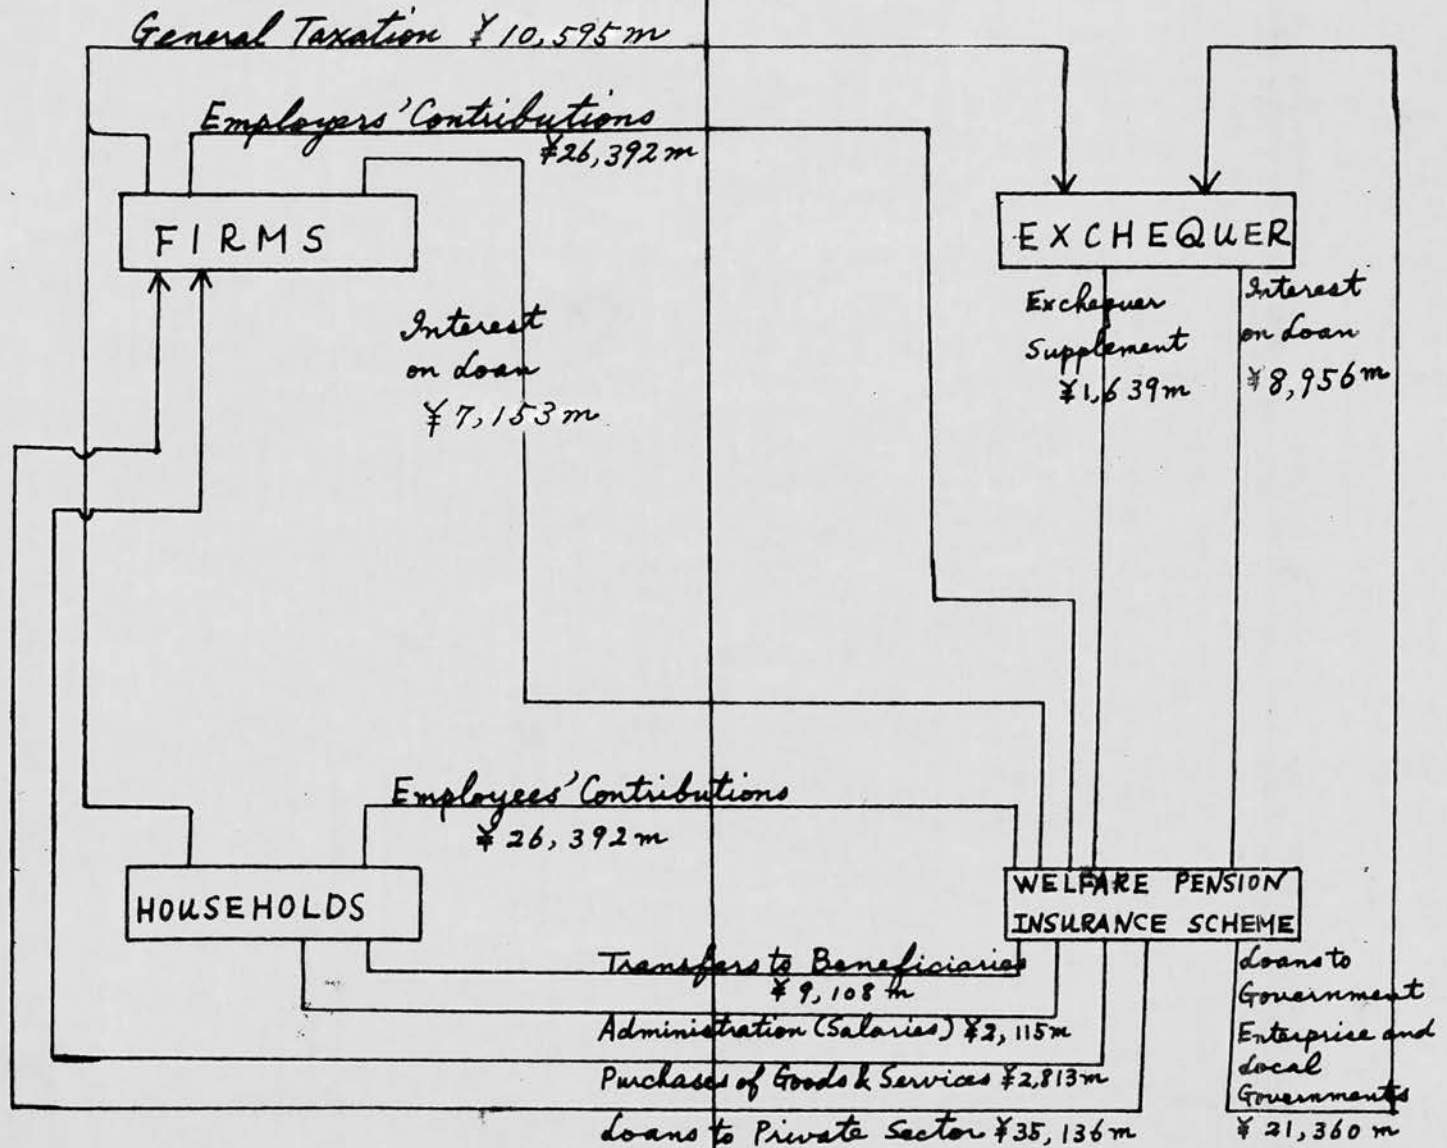 General Taxation ¥10,595m
Employers' Contributions
¥26,392m
FIRMS
EXCHEQUER
Interest
on Loan
¥7,153m
Exchequer
Supplement
¥1,639m
Interest
on Loan
¥8,956m
Employees' Contributions
¥26,392m
HOUSEHOLDS
WELFARE PENSION
INSURANCE SCHEME
Transfers to Beneficiaries
¥9,108m
Administration (Salaries) ¥2,115m
Purchases of Goods & Services ¥2,813m
Loans to Private Sector ¥35,136m
Loans to
Government
Enterprise and
Local
Governments
¥21,360m